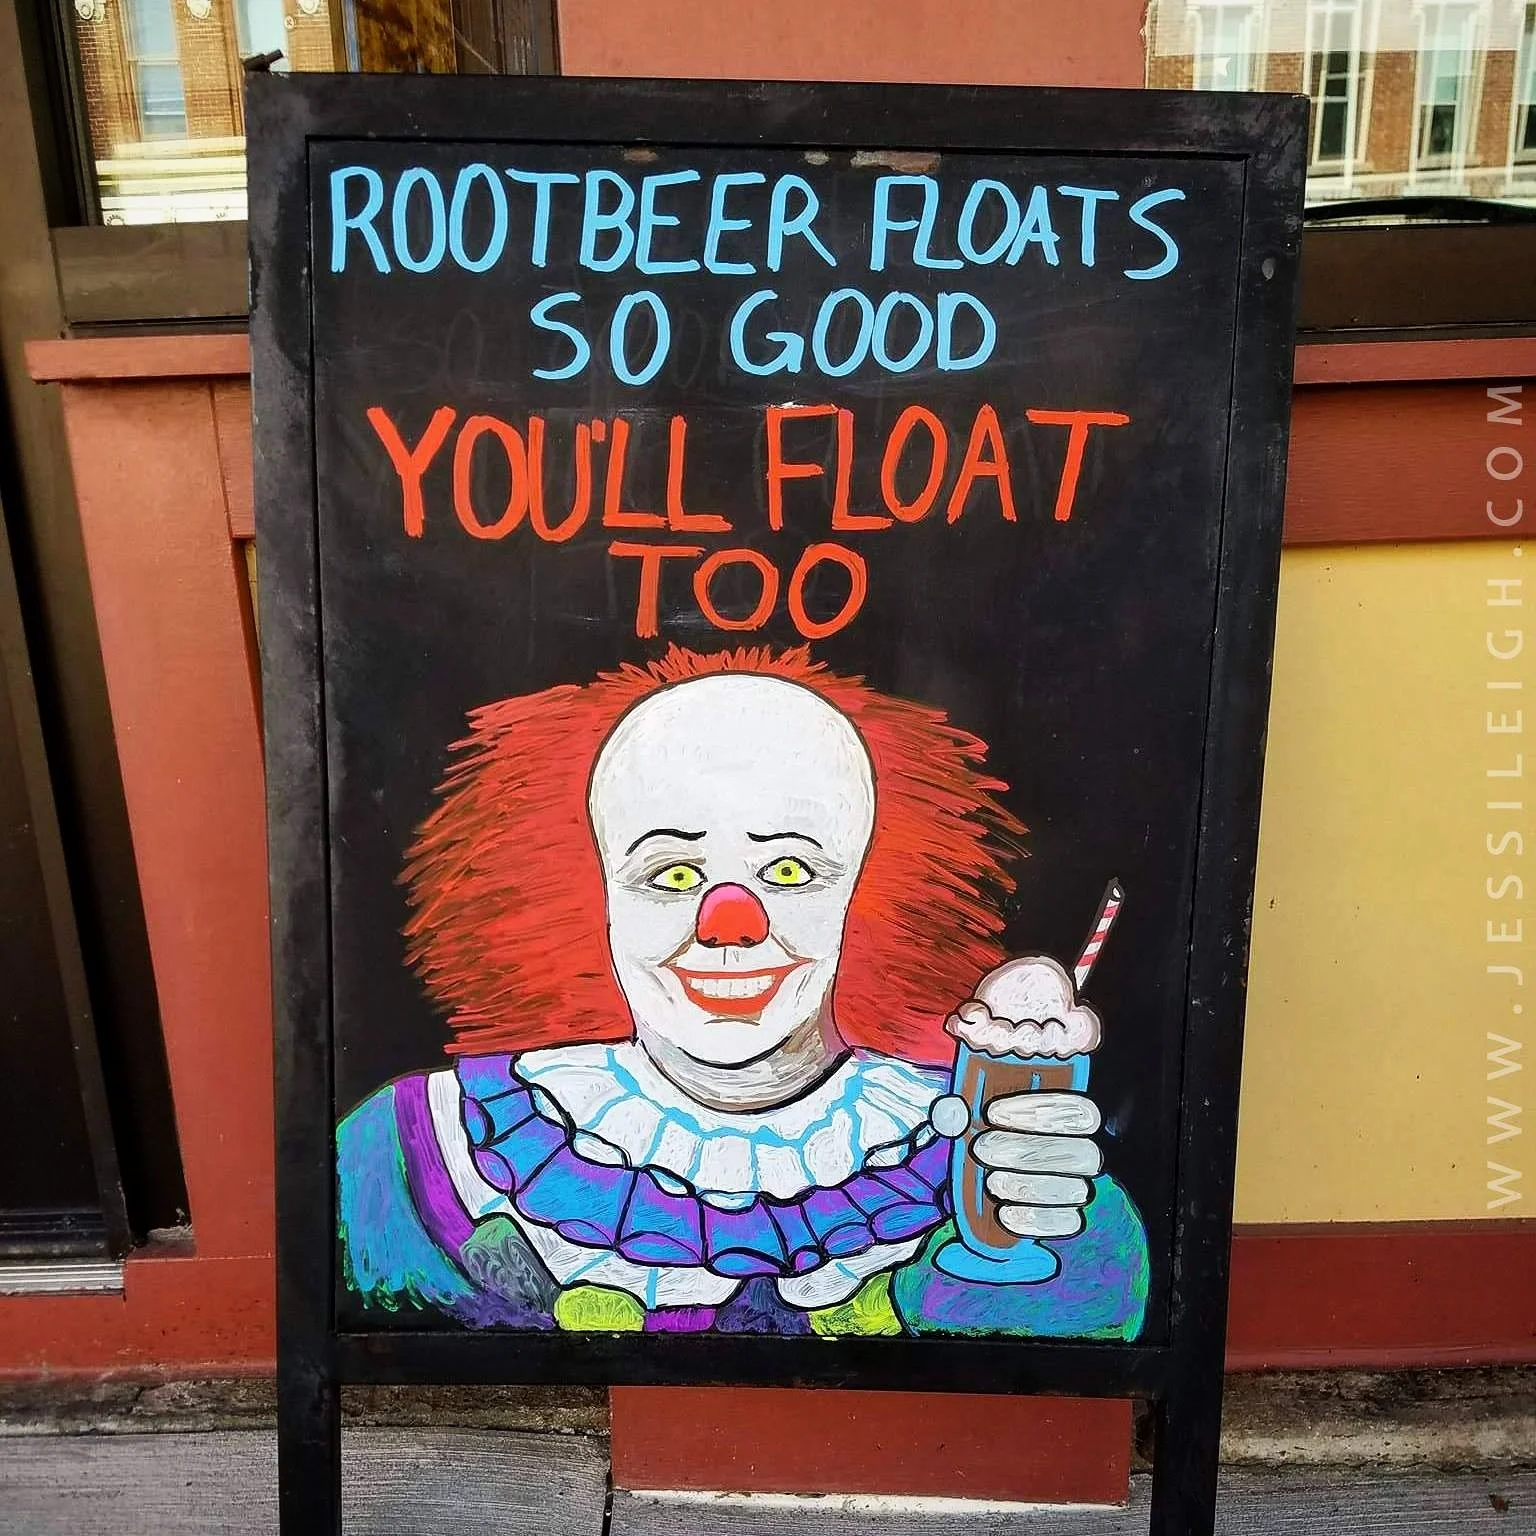 ROOTBEER FLOATS
SO GOOD
YOU'LL FLOAT
TOO
WWW.JESSILEIGH.COM